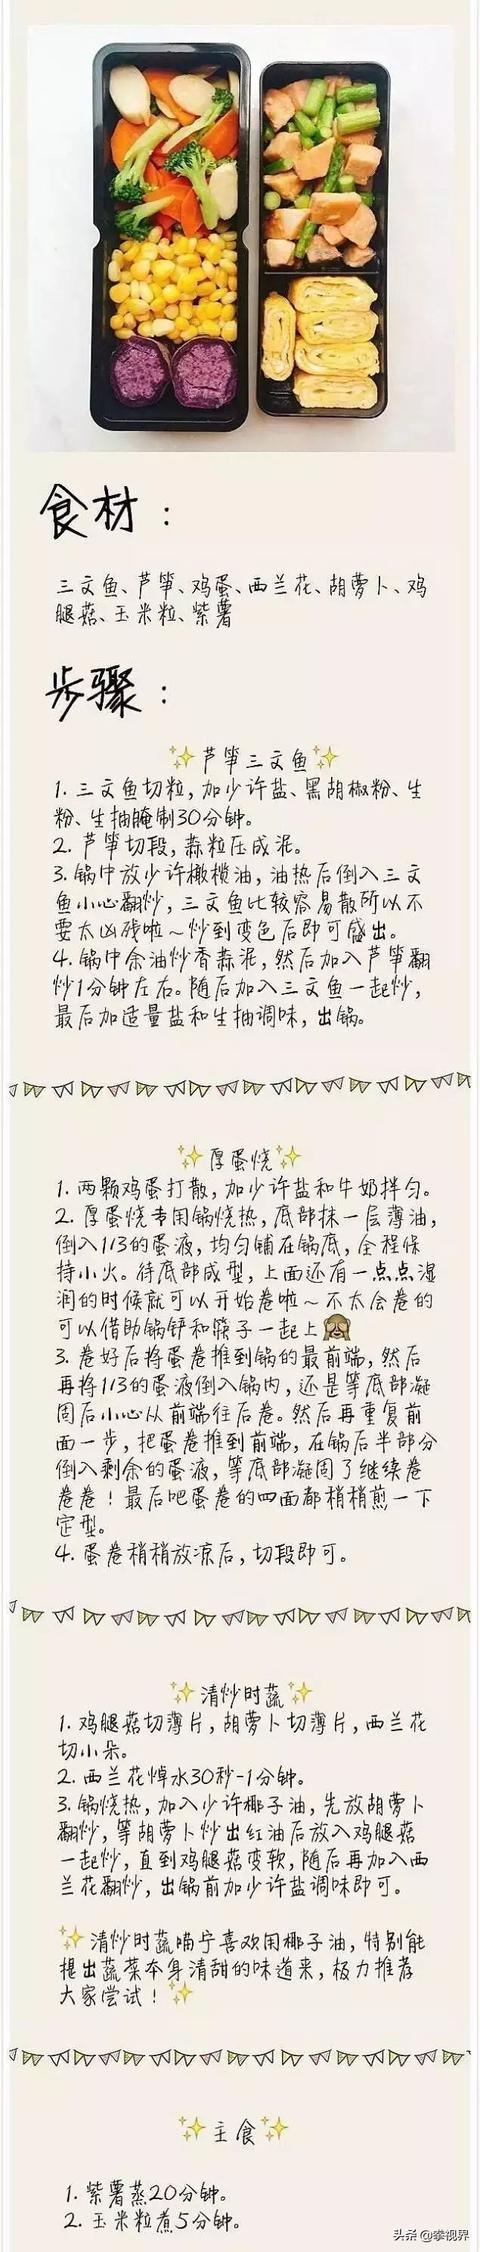 食材：
三文鱼、芦笋、鸡蛋、西兰花、胡萝卜、鸡
腿菇、玉米粒、紫薯
步骤：
✨芦笋三文鱼✨
1. 三文鱼切粒，加少许盐、黑胡椒粉、生
粉、生抽腌制30分钟。
2. 芦笋切段，蒜粒压成泥。
3. 锅中放少许橄榄油，油热后倒入三文
鱼小心翻炒，三文鱼比较容易散所以不
要太凶残啦～炒到变色后即可盛出。
4. 锅中余油炒香蒜泥，然后加入芦笋翻
炒1分钟左右。随后加入三文鱼一起炒，
最后加适量盐和生抽调味，出锅。
✨厚蛋烧✨
1. 两颗鸡蛋打散，加少许盐和牛奶拌匀。
2. 厚蛋烧专用锅烧热，底部抹一层薄油，
倒入1/3的蛋液，均匀铺在锅底，全程保
持小火。待底部成型，上面还有一点点湿
润的时候就可以开始卷啦～不太会卷的
可以借助锅铲和筷子一起上🙈
3. 卷好后将蛋卷推到锅的最前端，然后
再将1/3的蛋液倒入锅内，还是等底部凝
固后小心从前端往后卷。然后再重复前
面一步，把蛋卷推到前端，在锅后半部分
倒入剩余的蛋液，等底部凝固了继续卷
卷卷！最后吧蛋卷的四面都稍稍煎一下
定型。
4. 蛋卷稍稍放凉后，切段即可。
✨清炒时蔬✨
1. 鸡腿菇切薄片，胡萝卜切薄片，西兰花
切小朵。
2. 西兰花焯水30秒-1分钟。
3. 锅烧热，加入少许椰子油，先放胡萝卜
翻炒，等胡萝卜炒出红油后放入鸡腿菇
一起炒，直到鸡腿菇变软，随后再加入西
兰花翻炒，出锅前加少许盐调味即可。
✨清炒时蔬喵宁喜欢用椰子油，特别能
提出蔬菜本身清甜的味道来，极力推荐
大家尝试！✨
✨主食✨
1. 紫薯蒸20分钟。
2. 玉米粒煮5分钟。
头条 @拳视界